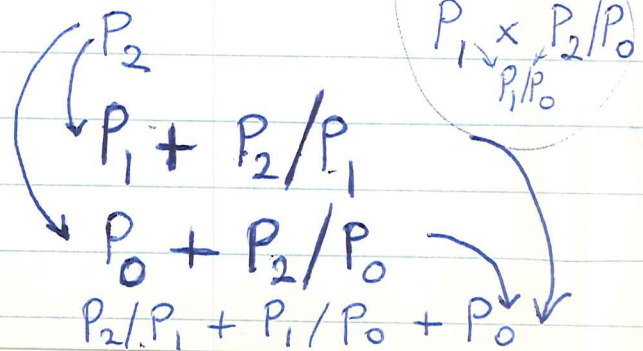 P₂
P₁ × P₂/P₀
P₁/P₀
P₁ + P₂/P₁
P₀ + P₂/P₀
P₂/P₁ + P₁/P₀ + P₀